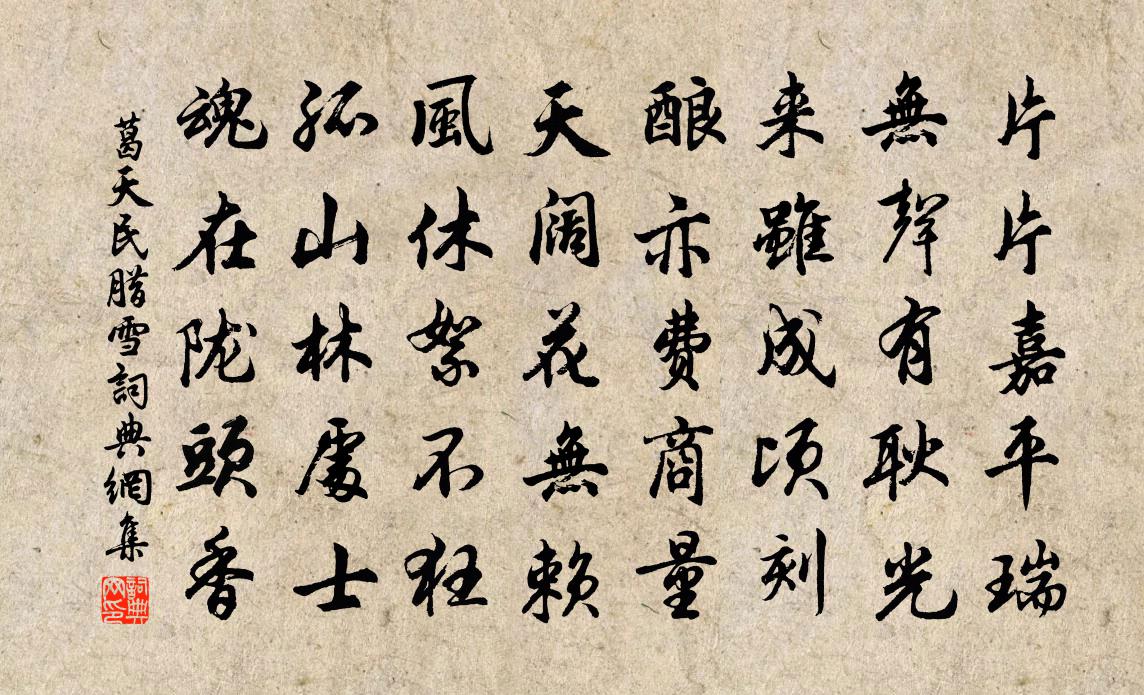 片片嘉平瑞
無聲有耿光
来雖成頃刻
酿亦費商量
天阔花無赖
風休絮不狂
孤山林處士
魂在陇頭香
葛天民腊雪詞典網集
詞典网印